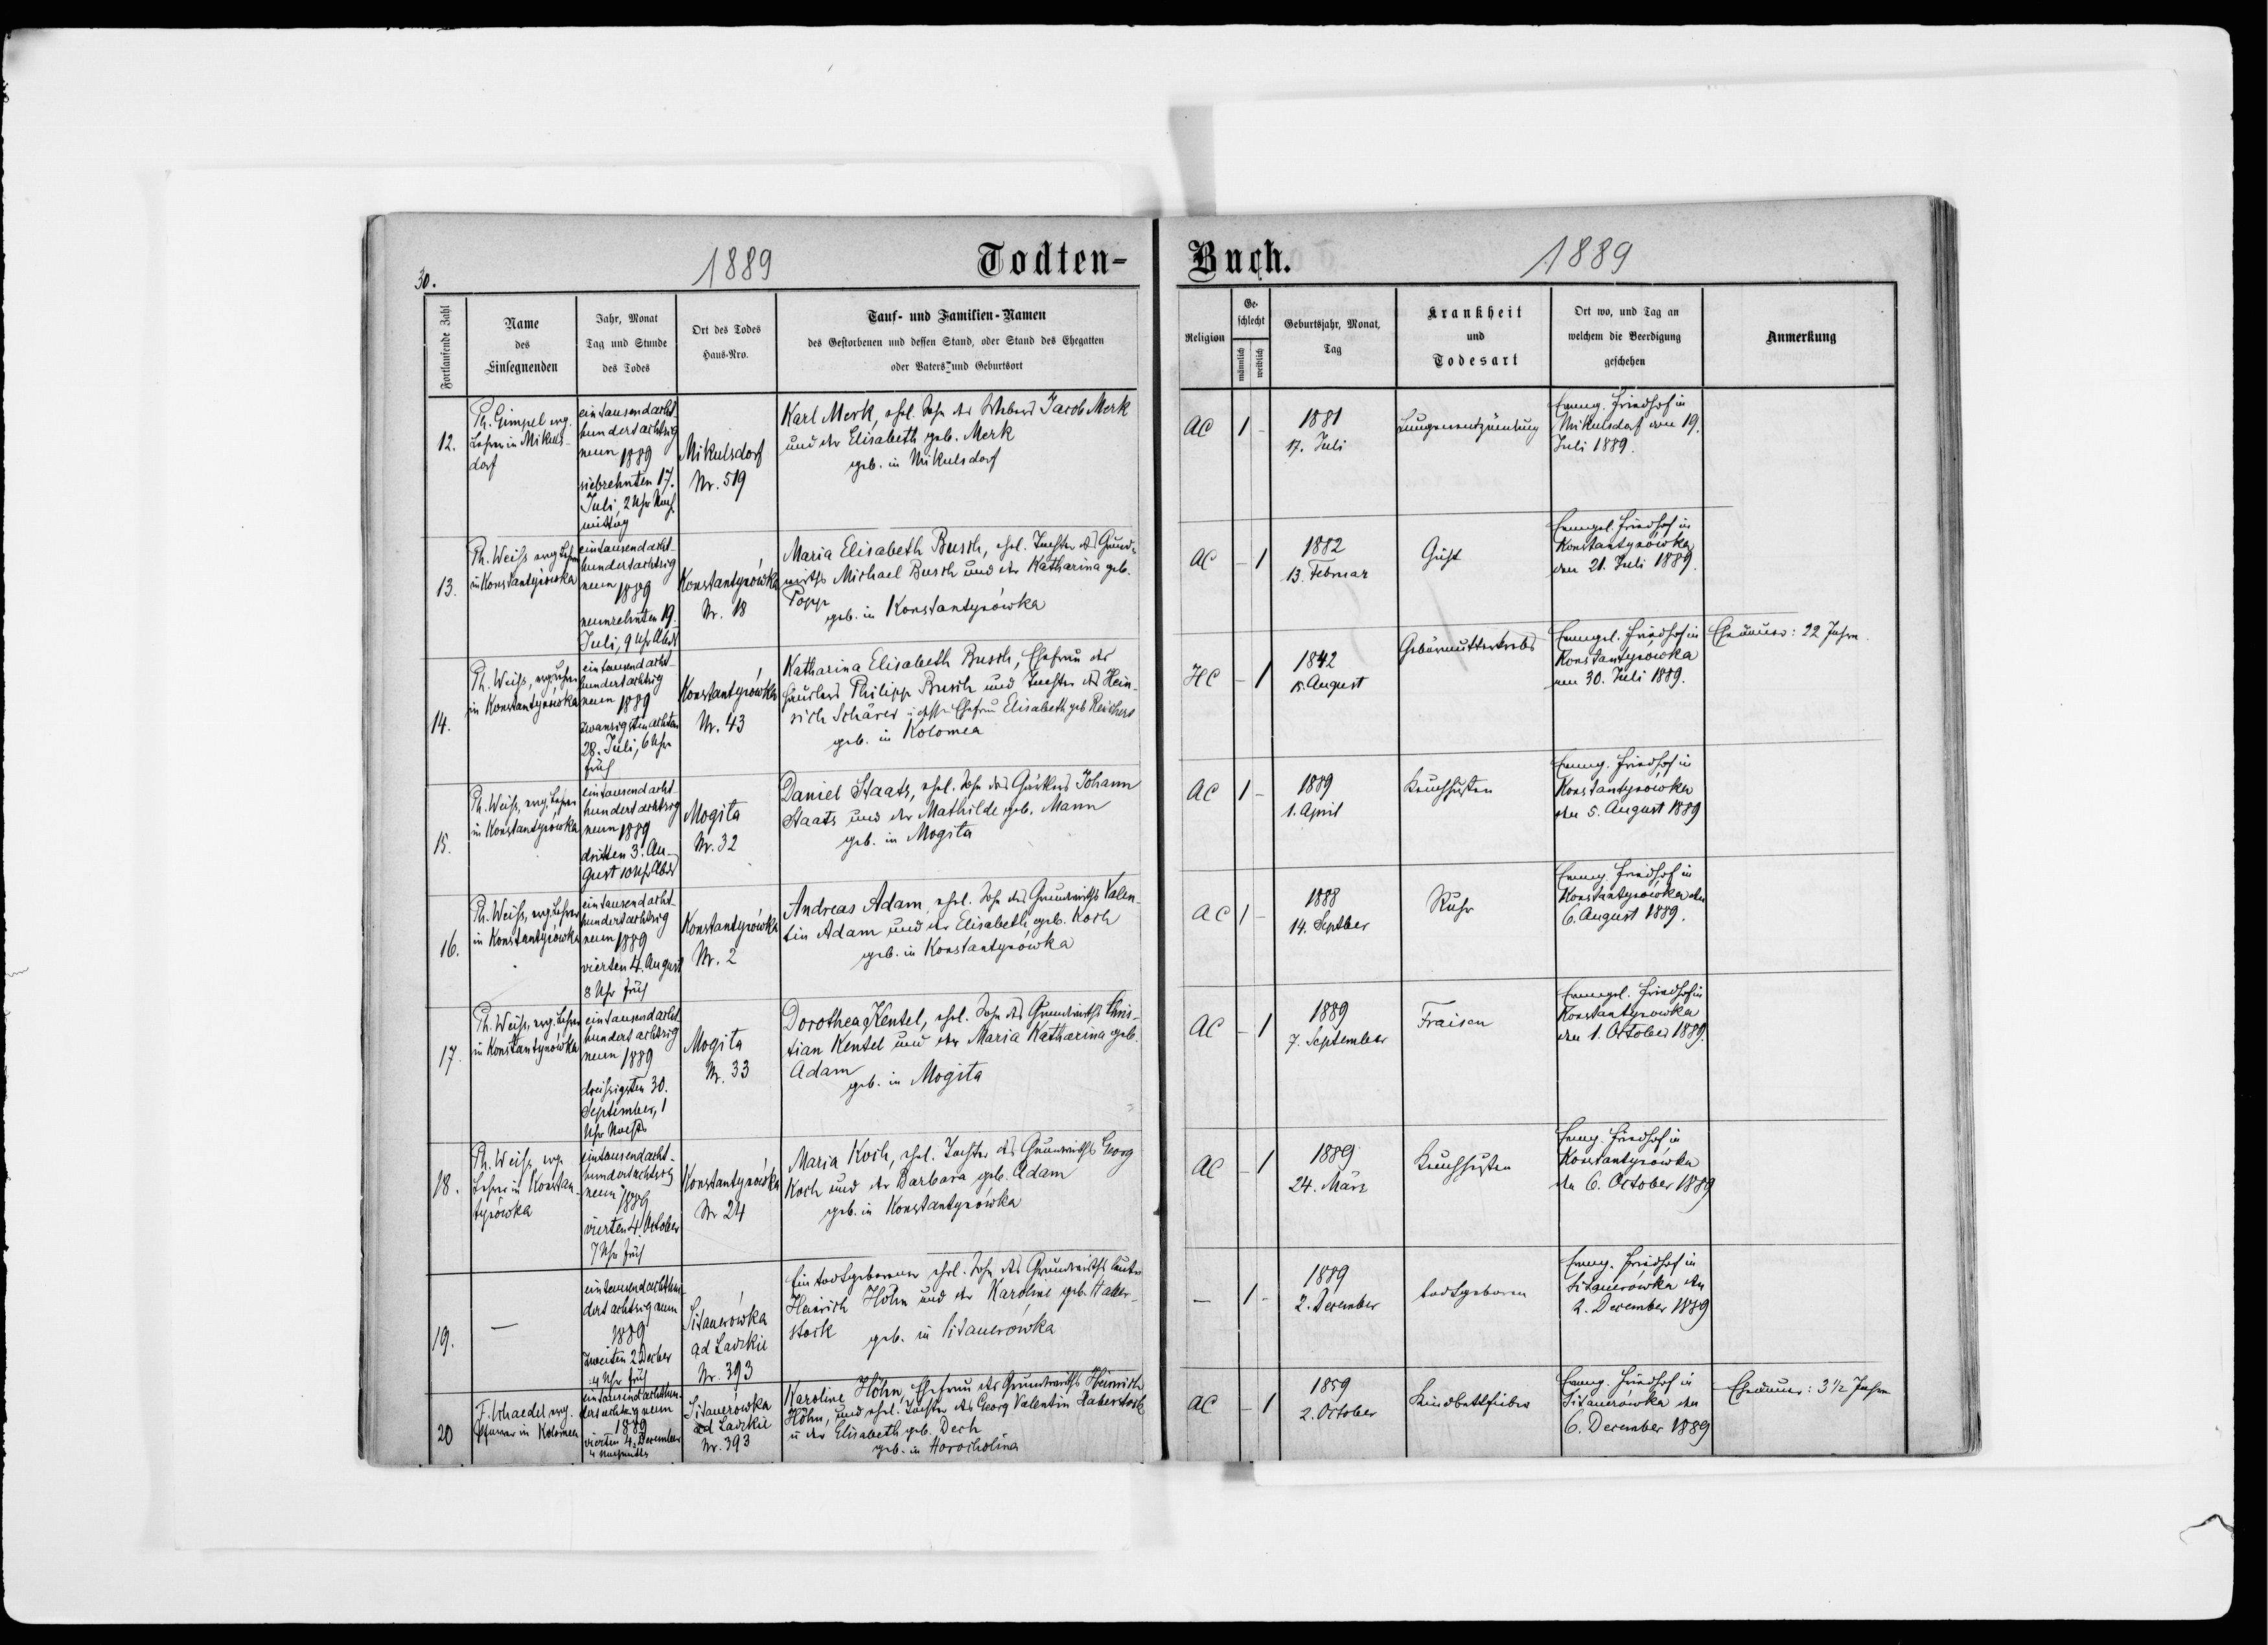 30.
1889
Todten-
Buch.
1889
Fortlaufende Zahl
Name
des
Einsegnenden
Jahr, Monat
Tag und Stunde
des Todes
Ort des Todes
Haus-Nro.
Tauf- und Familien-Namen
des Gestorbenen und dessen Stand, oder Stand des Ehegatten
oder Vaters- und Geburtsort
Religion
Ge-
schlecht
männlich
weiblich
Geburtsjahr, Monat,
Tag
Krankheit
und
Todesart
Ort wo, und Tag an
welchem die Beerdigung
geschehen
Anmerkung
12.
Ph. Gimpel evg.
Lehrer in Mikuls-
dorf
eintausendacht-
hundertachtzig
neun 1889
siebzehnten 17.
Juli, 2 Uhr Nach-
mittag
Mikulsdorf
Nr. 519
Karl Merk, ehel. Sohn des Webers Jacob Merk
und der Elisabeth geb. Merk
geb. in Mikulsdorf
AC
1
-
1881
17. Juli
Lungenentzündung
Evang. Friedhof in
Mikulsdorf am 19.
Juli 1889.
13.
Ph. Weiß evg. Lehrer
in Konstantynówka
eintausendacht-
hundertachtzig
neun 1889
neunzehnten 19.
Juli, 9 Uhr Abds
Konstantynówka
Nr. 18
Maria Elisabeth Busch, ehel. Tochter des Grund-
wirths Michael Busch und der Katharina geb.
Popp
geb. in Konstantynówka
AC
-
1
1882
13. Februar
Gicht
Evangel. Friedhof in
Konstantynówka
den 21. Juli 1889.
14.
Ph. Weiß, evg. Lehrer
in Konstantynówka
eintausendacht-
hundertachtzig
neun 1889
zwanzigstenachten
28. Juli, 6 Uhr
früh
Konstantynówka
Nr. 43
Katharina Elisabeth Busch, Ehefrau des
Häuslers Philipp Busch und Tochter des Hein-
rich Schärer u. dessen Ehefrau Elisabeth geb. Reichert
geb. in Kolomea
HC
-
1
1842
15. August
Gebärmutterkrebs
Evangel. Friedhof in
Konstantynówka
am 30. Juli 1889.
Ehedauer: 22 Jahre.
15.
Ph. Weiß, evg. Lehrer
in Konstantynówka
eintausendacht-
hundertachtzig
neun 1889
dritten 3. Au-
gust 10 Uhr Abds
Mogita
Nr. 32
Daniel Staats, ehel. Sohn des Gärtners Johann
Staats und der Mathilde geb. Mann
geb. in Mogita
AC
1
-
1889
1. April
Keuchhusten
Evang. Friedhof in
Konstantynówka
den 5. August 1889
16.
Ph. Weiß, evg. Lehrer
in Konstantynówka
eintausendacht-
hundertachtzig
neun 1889
vierten 4. August
8 Uhr früh
Konstantynówka
Nr. 2
Andreas Adam, ehel. Sohn des Grundwirths Valen-
tin Adam und der Elisabeth geb. Koch
geb. in Konstantynowka
AC
1
-
1888
14. Septber
Ruhr
Evang. Friedhof in
Konstantynówka den
6. August 1889.
17.
Ph. Weiß, evg. Lehrer
in Konstantynówka
eintausendacht
hundertachtzig
neun 1889
dreißigsten 30.
September, 1
Uhr Nachts
Mogita
Nr. 33
Dorothea Kentel, ehel. Sohn des Grundwirths Chris-
tian Kentel und der Maria Katharina geb.
Adam
geb. in Mogita
AC
-
1
1889
7. September
Fraisen
Evangel. Friedhof in
Konstantynowka
den 1. October 1889.
18.
Ph. Weiß, evg.
Lehrer in Konstan-
tynówka
eintausendacht-
hundertachtzig
neun 1889
vierten 4. October
7 Uhr früh
Konstantynówka
Nr 24
Maria Koch, ehel. Tochter des Grundwirths Georg
Koch und der Barbara geb. Adam
geb. in Konstantynówka
AC
-
1
1889
24. März
Keuchhusten
Evang. Friedhof in
Konstantynówka
den 6. October 1889
19.
—
eintausendachthun-
dertachtzigneun
1889
zweiten 2 Decber
4 Uhr früh
Sitauerówka
ad Ladzkie
Nr. 393
Ein todtgeborener ehel. Sohn des Grundwirths
Heinrich Höhn und der Karoline geb. Haber-
stock
geb. in Sitauerówka
—
1
-
1889
2. December
todtgeboren
Evang. Friedhof in
Sitauerówka den
2. December 1889
20
F. Schaedel evg.
Pfarrer in Kolomea
eintausendachthun-
dertachtzigneun
1889
vierten 4. December
Sitauerówka
ad Ladzkie
Nr. 393
Karoline Höhn, Ehefrau des Grundwirths Heinrich
Höhn, und ehel. Tochter des Georg Valentin Haberstock
u der Elisabeth geb. Dech
geb. in Horocholina
AC
-
1
1859
2. October
Kindbettfieber
Evang. Friedhof in
Sitauerówka den
6. December 1889
Ehedauer: 3 1/2 Jahre